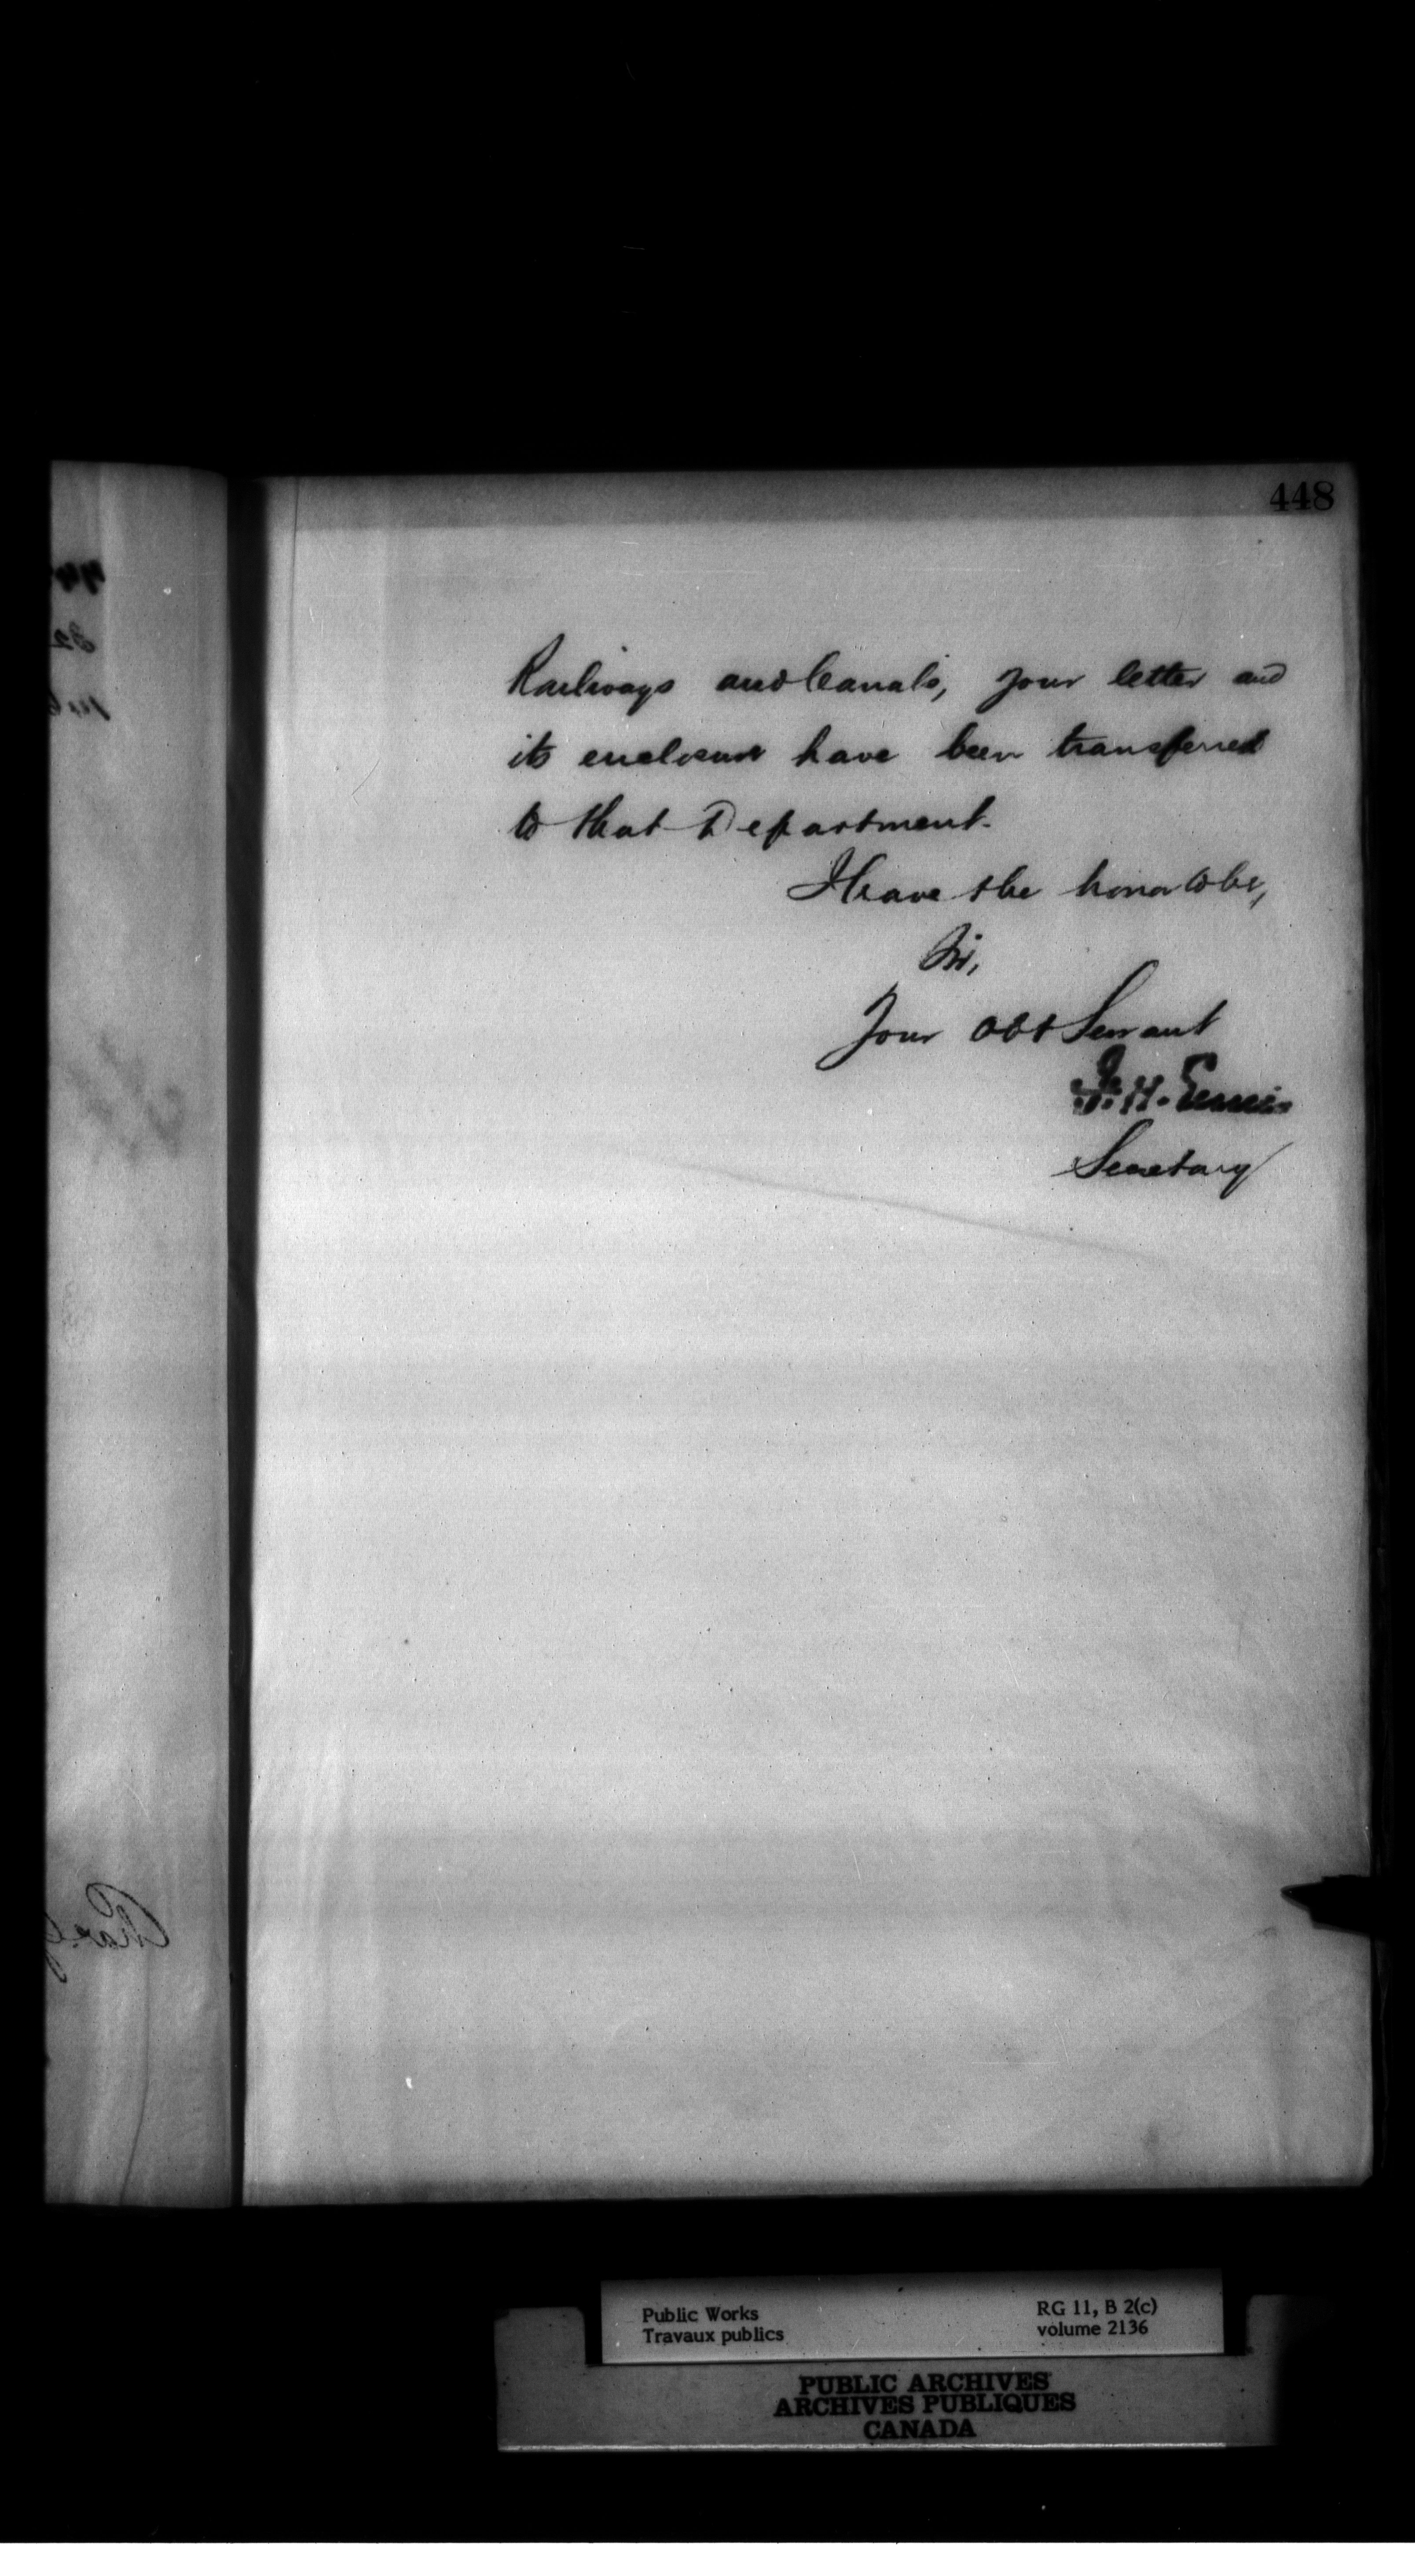 448
Railways and Canals, your letter and
its enclosure have been transferred
to that Department.
I have the honor to be,
Sir,
Your Obt Servant
F. H. Ennis
Secretary
Public Works
Travaux publics
RG 11, B 2(c)
volume 2136
PUBLIC ARCHIVES
ARCHIVES PUBLIQUES
CANADA